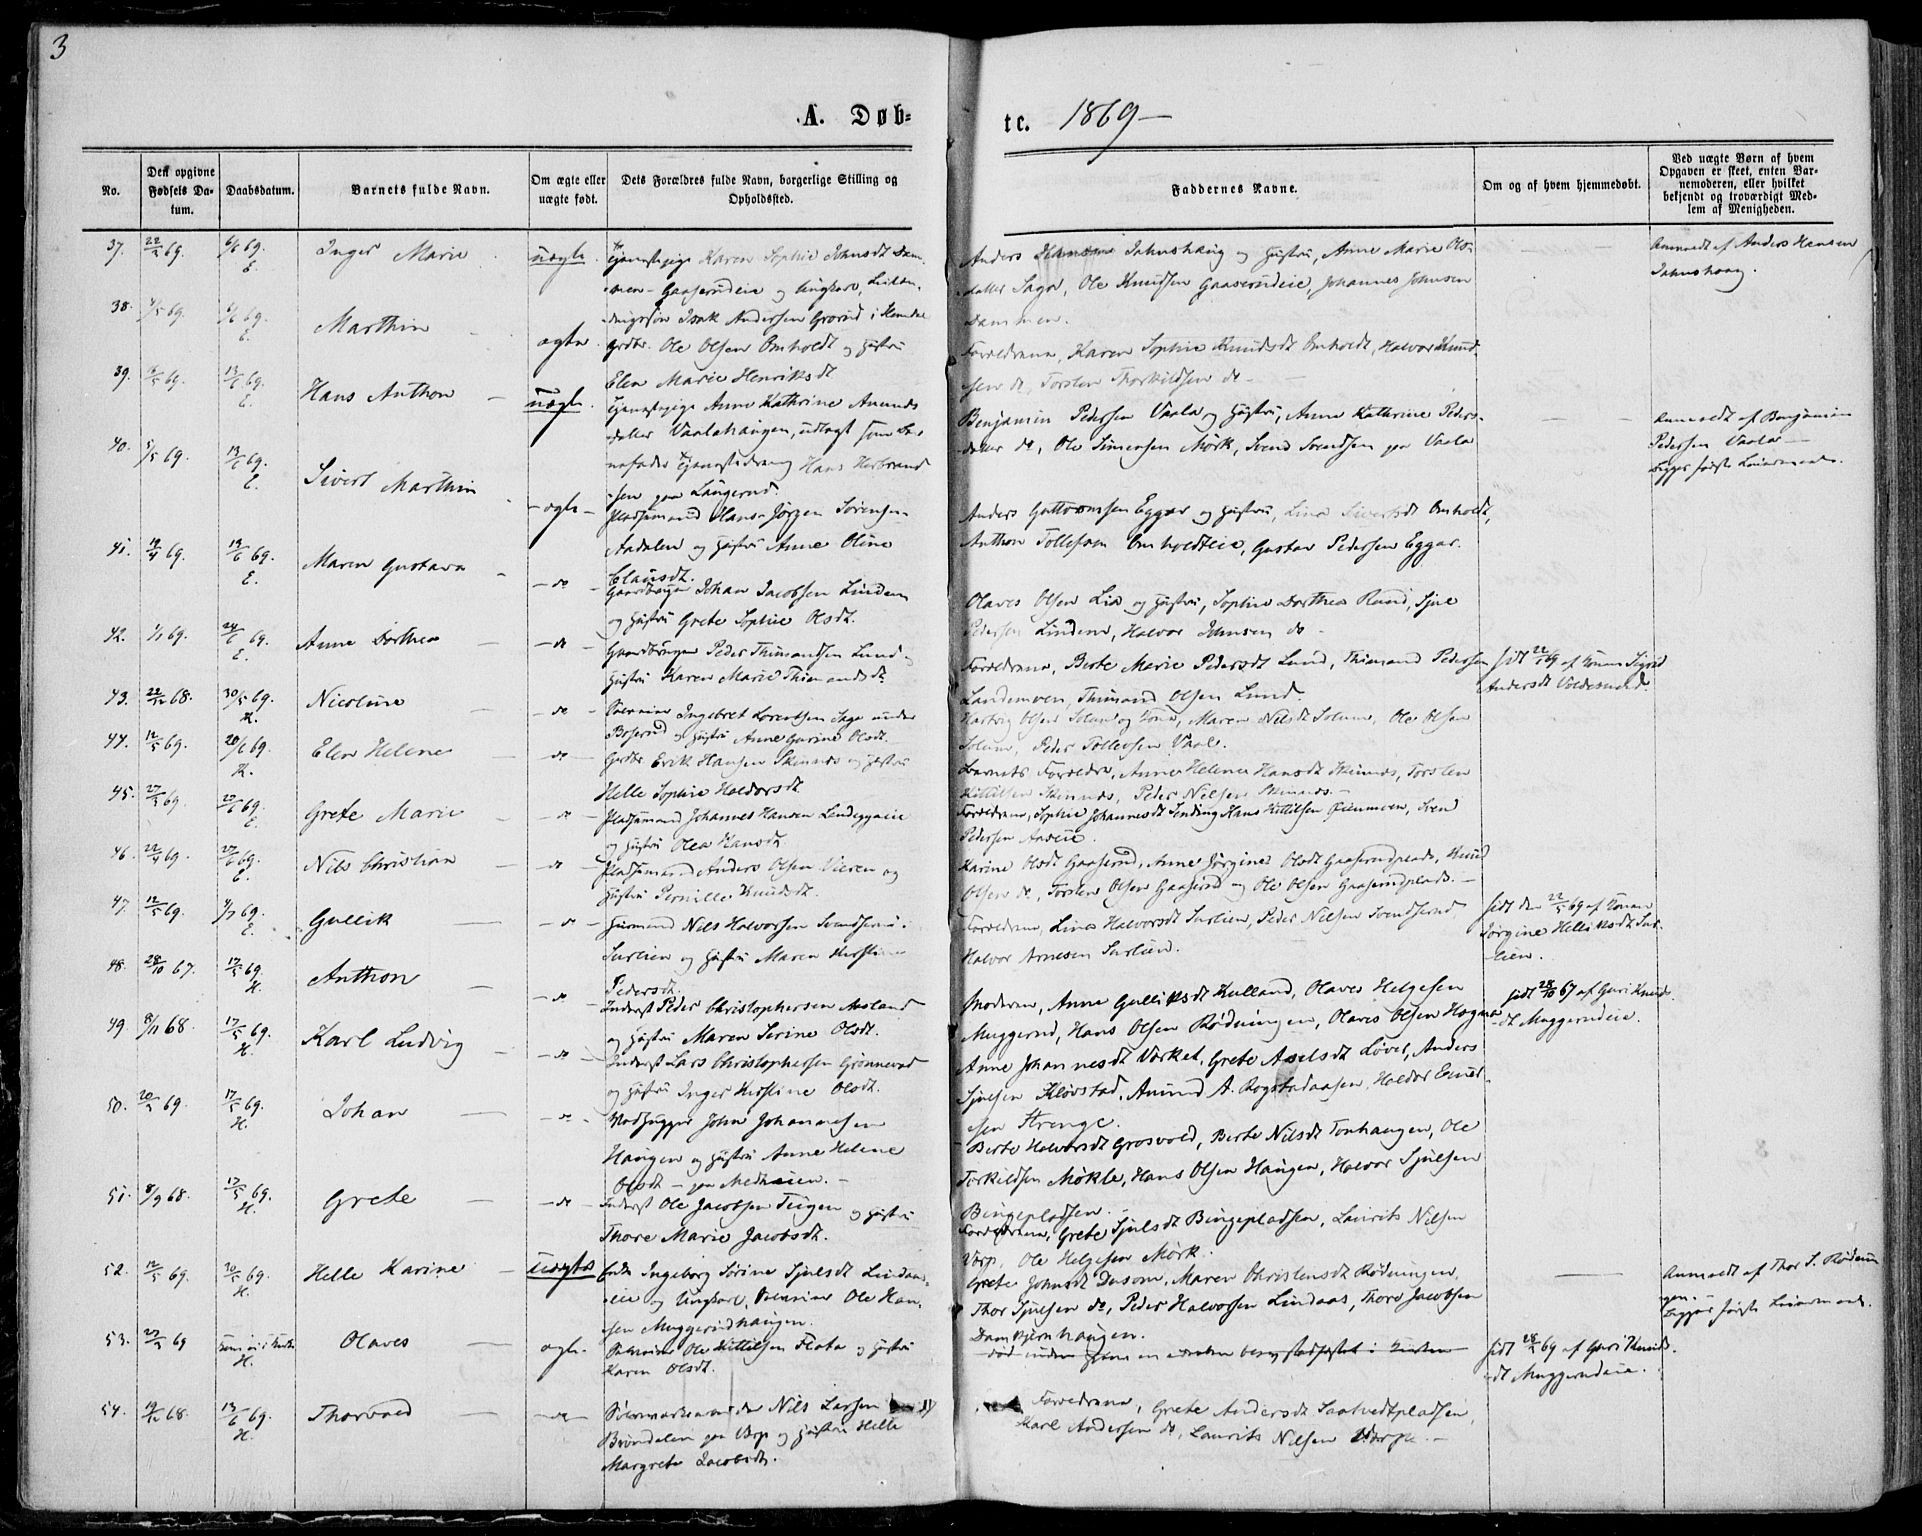 3
A. Døb-
te. 1869 —
No.
Dets opgivne Fødsels Da-tum.
Daabsdatum.
Barnets fulde Navn.
Om ægte eller uægte født.
Dets Forældres fulde Navn, borgerlige Stilling og Opholdssted.
Faddernes Navne.
Om og af hvem hjemmedøbt.
Ved uægte Børn af hvem Opgaven er skeet, enten Bar-nemoderen, eller hvilket bekjendt og troværdigt Med-lem af Menigheden.
37. 22/2 69. 6/6 69. E. Inger Marie uægte.
Tjenestepige Karen Sophie Johnsdt Dam-
men - Gaaserudeie og Ungkarl,
Isak Andersen Grorud i
Anders Jahnshaug og Hustru, Anne Marie Ols-
datter Saga, Ole Knudsen Gaaserudeie, Johannes Johnsen
Dammen.
Anmeldt af Anders Hansen
Jahnshaug.
38. 4/5 69. 6/6 69. E. Marthin ægte.
Grdbr. Ole Olsen Omholdt og Hustru
Elen Marie Henriksdt
Forældrene, Karen Sophie Knudsdt Omholdt, Halvor Knud-
sen do, Torsten Thorkildsen do -
39. /5 69. 13/6 69. E. Hans Anthon — uægte.
Tjenestepige Anne Kathrine Amunds
datter Vaalahaugen, udlagt som Bar-
nefader Tjenestedreng Hans Herbrand
sen paa Laugerud.
Benjamin Pedersen Vaala og Hustru, Anne Kathrine Peders-
datter do, Ole Simensen Mørk, Svend Svendsen paa Vaala
Anmeldt af Benjamin
Pedersen Vaala —
Begges første Leiermaal.
40. 5/5 69. 13/6 69. E. Sivert Marthin - ægte -
Pladsmand Hans Jørgen Sørensen
Aadalen og Hustru Anne Oline
Clausdt.
Anders Guttormsen Eggar og Hustru, Lina Sivertsdt Omholdt,
Anthon Tollefsen Omholdteie, Gustav Pedersen Eggar.
41. 12/4 69. 13/6 69. E. Maren Gustava - do
Gaardbruger Johan Jacobsen Linden
og Hustru Grete Sophie Olsdt.
Olaves Olsen Lia og Hustru, Sophie Dorthea Rund, Sjul
Pedersen Linden, Halvor Johnsen do -
42. 1/1 69. 24/6 69. E. Anne Dorthea — do -
Gaardbruger Peder Thimandsen Lund og
Hustru Karen Marie Thimandsdt
Forældrene, Berte Marie Pedersdt Lund, Thimand Pedersen
Landemoen, Thimand Olsen Lund.
hjdt 22/1 69 af Konen Sigrid
Andersdt Voldesund.
43. 22/12 68. 30/5 69. K. Nicoline — do
Ingebret Lorentsen Saga under
Boserud og Hustru Anne Gurine Olsdt.
Hartvig Olsen Solum og Kone, Maren Nilsdt Solum, Ole Olsen
Solum, Peder Tollevsen Vaale.
44. 12/5 69. 20/6 69. K. Elen Helene — do —
Grdbr. Erik Hansen Skinnes og Hustru
Helle Sophie Haldorsdt
Barnets Forældre, Anne Helene Hansdt Skinnes, Torsten
Kittilsen Skinnes, Peder Nilsen Skinnes. -
45. 27/3 69. 27/6 69. E. Grete Marie - do -
Pladsmand Johannes Hansen Lindeggaeie
og Hustru Olea Hansdt.
Forældrene, Sophie Johannesdt Sending, Hans Kittilsen Øienmoen, Sven
Pedersen Aaseie.
46. 22/4 69. 27/6 69. E. Nils Christian — do
Pladsmand Anders Olsen Vieren og
Hustru Pernille Knudsdt.
Karine Olsdt Gaaserud, Anne Jørgine Olsdt Gaaserudplads, Knud
Olsen do, Torsten Olsen Gaaserud og Ole Olsen Gaaserudplads. -
47. 12/5 69. 4/7 69. E. Gullik — - do
Huusmand Nils Halvorsen Svendserud -
Surlien og Hustru Maren Kirstine
Pedersdt.
Forældrene, Lina Halvorsdt Surlien, Peder Nilsen Svendserud,
Halvor Arnesen Surlien.
hjdt den 22/5 69 af Konen
Jørgine Helliksdt Sur-
lien.
48. 28/10 67. 17/5 69. H. Anthon — do
Inderst Peder Christophersen Aasland
og Hustru Maren Serine Olsdt.
Moderen, Anne Gulliksdt Kulland, Olaves Helgesen
Muggerud, Hans Olsen Rødningen, Olaves Olsen Hogna
hjdt 28/10 67 af Guri Knuds
dt Muggerudeie.
49. 8/11 68. 17/5 69. H. Karl Ludvig - do
Inderst Lars Christophersen Grønnevold
og Hustru Inger Kirstine Olsdt.
Anne Johannesdt Værket, Grete Axelsdt Løver, Anders
Sjulsen Kløvstad, Amund A. Rogstadaasen, Haldor Einer-
sen Strenge.
50. 20/2 69. 17/5 69. H. Johan — - do -
John Johannesen
Haugen og Hustru Anne Helene
Olsdt - paa Medhaien. -
Berte Halvorsdt Grosvold, Berte Nilsdt Tonhaugen, Ole
Torkildsen Møkle, Hans Olsen Haugen, Halvor Sjulsen
Bingepladsen.
51. 8/9 68. 17/5 69. H. Grete — - do -
Inderst Ole Jacobsen Teigen og Hustru
Thore Marie Jacobsdt.
Forældrene, Grete Sjulsdt Bingepladsen, Laurits Nilsen
Værp, Ole Helgesen Mørk.
52. 12/5 69. 30/5 69. H. Helle Karine — uægte
Enke Ingeborg Sørine Sjulsdt Lindaas-
eie og Ungkarl, Ole Han-
sen Muggerudhaugen.
Grete Johnsdt Dusom, Maren Christensdt Rødningen,
Thor Sjulsen do, Peder Halvorsen Lindaas, Thore Jacobsen
Dambjernhaugen.
Anmeldt af Thor S. Rødnin
gen. -
Begges første Leiermaal.
53. 27/2 69 H. Olaves — ægte.
Ole Kittilsen Flata og Hustru
Karen Olsdt.
død uden at være bleven stadfæstet i Kirken
hjdt 28/2 69 af Guri Knuds-
dt Muggerudeie.
54. 19/12 68. 13/6 69. H. Thorvald — - do -
Nils Larsen
Brøndalen paa Værp og Hustru Helle
Margrete Jacobsdt.
Forældrene, Grete Andersdt Saatvedtpladsen,
Karl Andersen do, Laurits Nilsen Værp. -